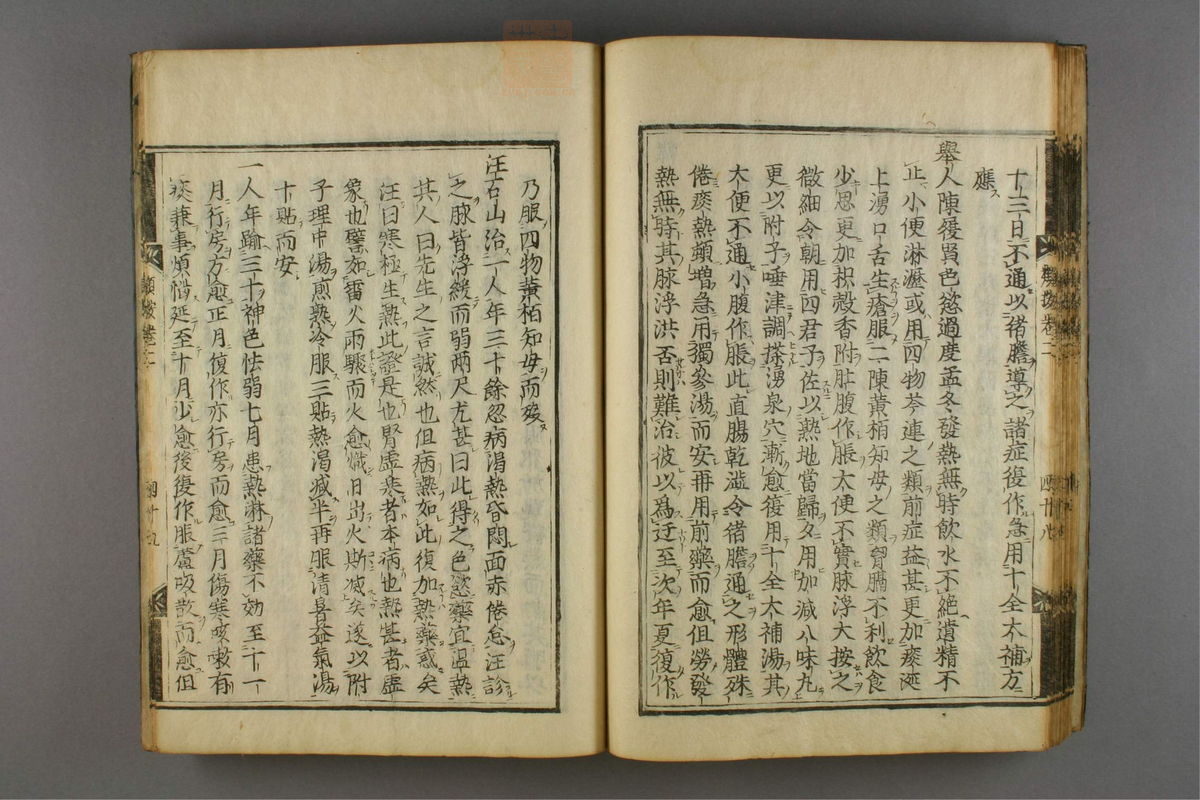 十三日不通以猪膽導之諸症復作急用十全大補方
應
舉人陳履賢色慾過度孟冬發熱無時飲水不絶遺精不
止小便淋瀝或用四物芩連之類前症益甚更加痰涎
上湧口舌生瘡服二陳黄栢知母之類胷膈不利飲食
少思更加枳殻香附肚腹作脹大便不實脉浮大按之
微細令朝用四君子佐以熟地當歸夕用加减八味丸
更以附子唾津調搽湧泉穴漸愈復用十全大補湯其
大便不通小腹作脹此直腸乾澁令猪膽通之形體殊
倦痰熱頻增急用獨參湯而安再用前藥而愈但勞發
熱無時其脉浮洪否則難治彼以爲迂至次年夏復作
乃服四物黄栢知母而殁
汪石山治一人年三十餘忽病渴熱昏悶面赤倦怠汪診
之脉皆浮緩而弱兩尺尤甚曰此得之色慾藥宜温熱
其人曰先生之言誠然也但病熱如此復加熱藥惑矣
汪曰寒極生熱此證是也腎虚寒者本病也熱甚者虚
象也譬如雷火雨驟而火愈熾日出火斯减矣遂以附
子理中湯煎熟冷服三貼熱渴减半再服清暑益氣湯
十貼而安
一人年踰三十神色怯弱七月患熱淋諸藥不効至十一
月行房方愈正月復作亦行房而愈三月傷寒咳嗽有
痰兼事煩惱延至十月少愈後復作脹蘆吸散而愈但
類按卷二
四十八
類按卷二
四十九